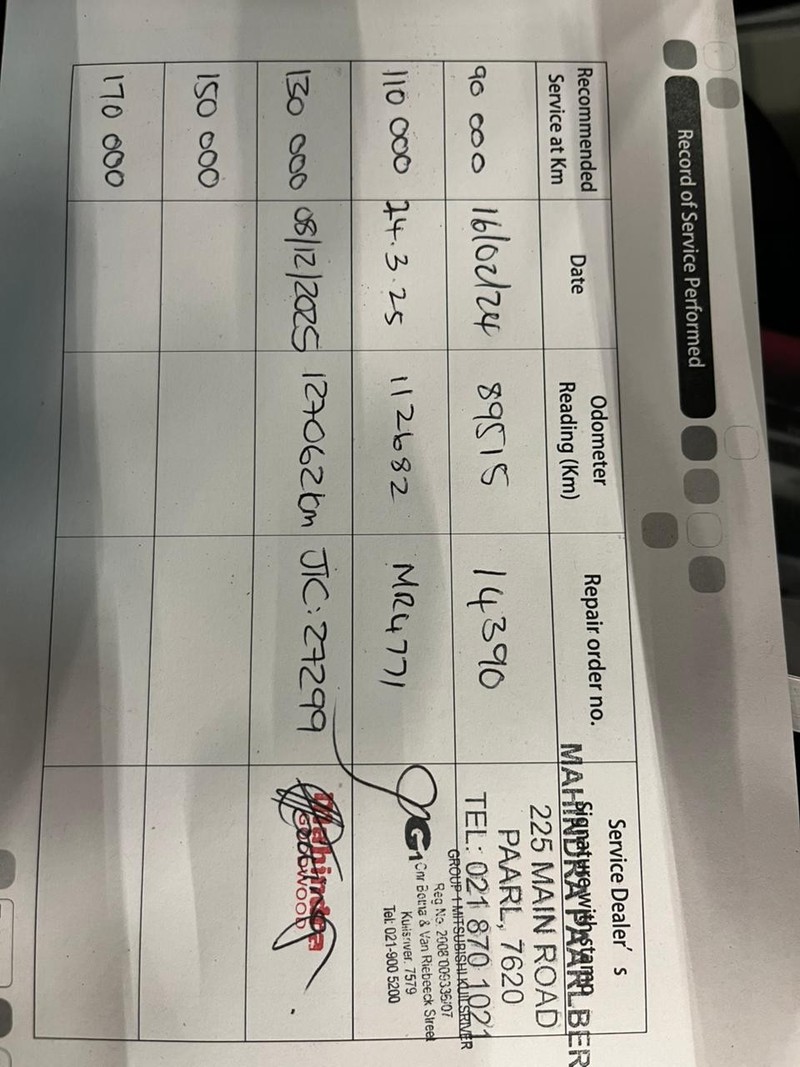 Record of Service Performed
Recommended Service at Km
Date
Odometer Reading (Km)
Repair order no.
Service Dealer's Signature with stamp
90 000
16/02/24
89515
14390
MAHINDRA PAARLBER
225 MAIN ROAD
PAARL, 7620
TEL: 021 870 1021
110 000
24.3.25
112682
MR4771
G1
GROUP 1 MITSUBISHI KUILSRIVER
Reg No. 2008/009336/07
Cnr Botha & Van Riebeeck Street
Kuilsriver. 7579
Tel: 021-900 5200
130 000
08/12/2025
127062km
JIC:27299
Mahindra
WOOD
150 000
170 000